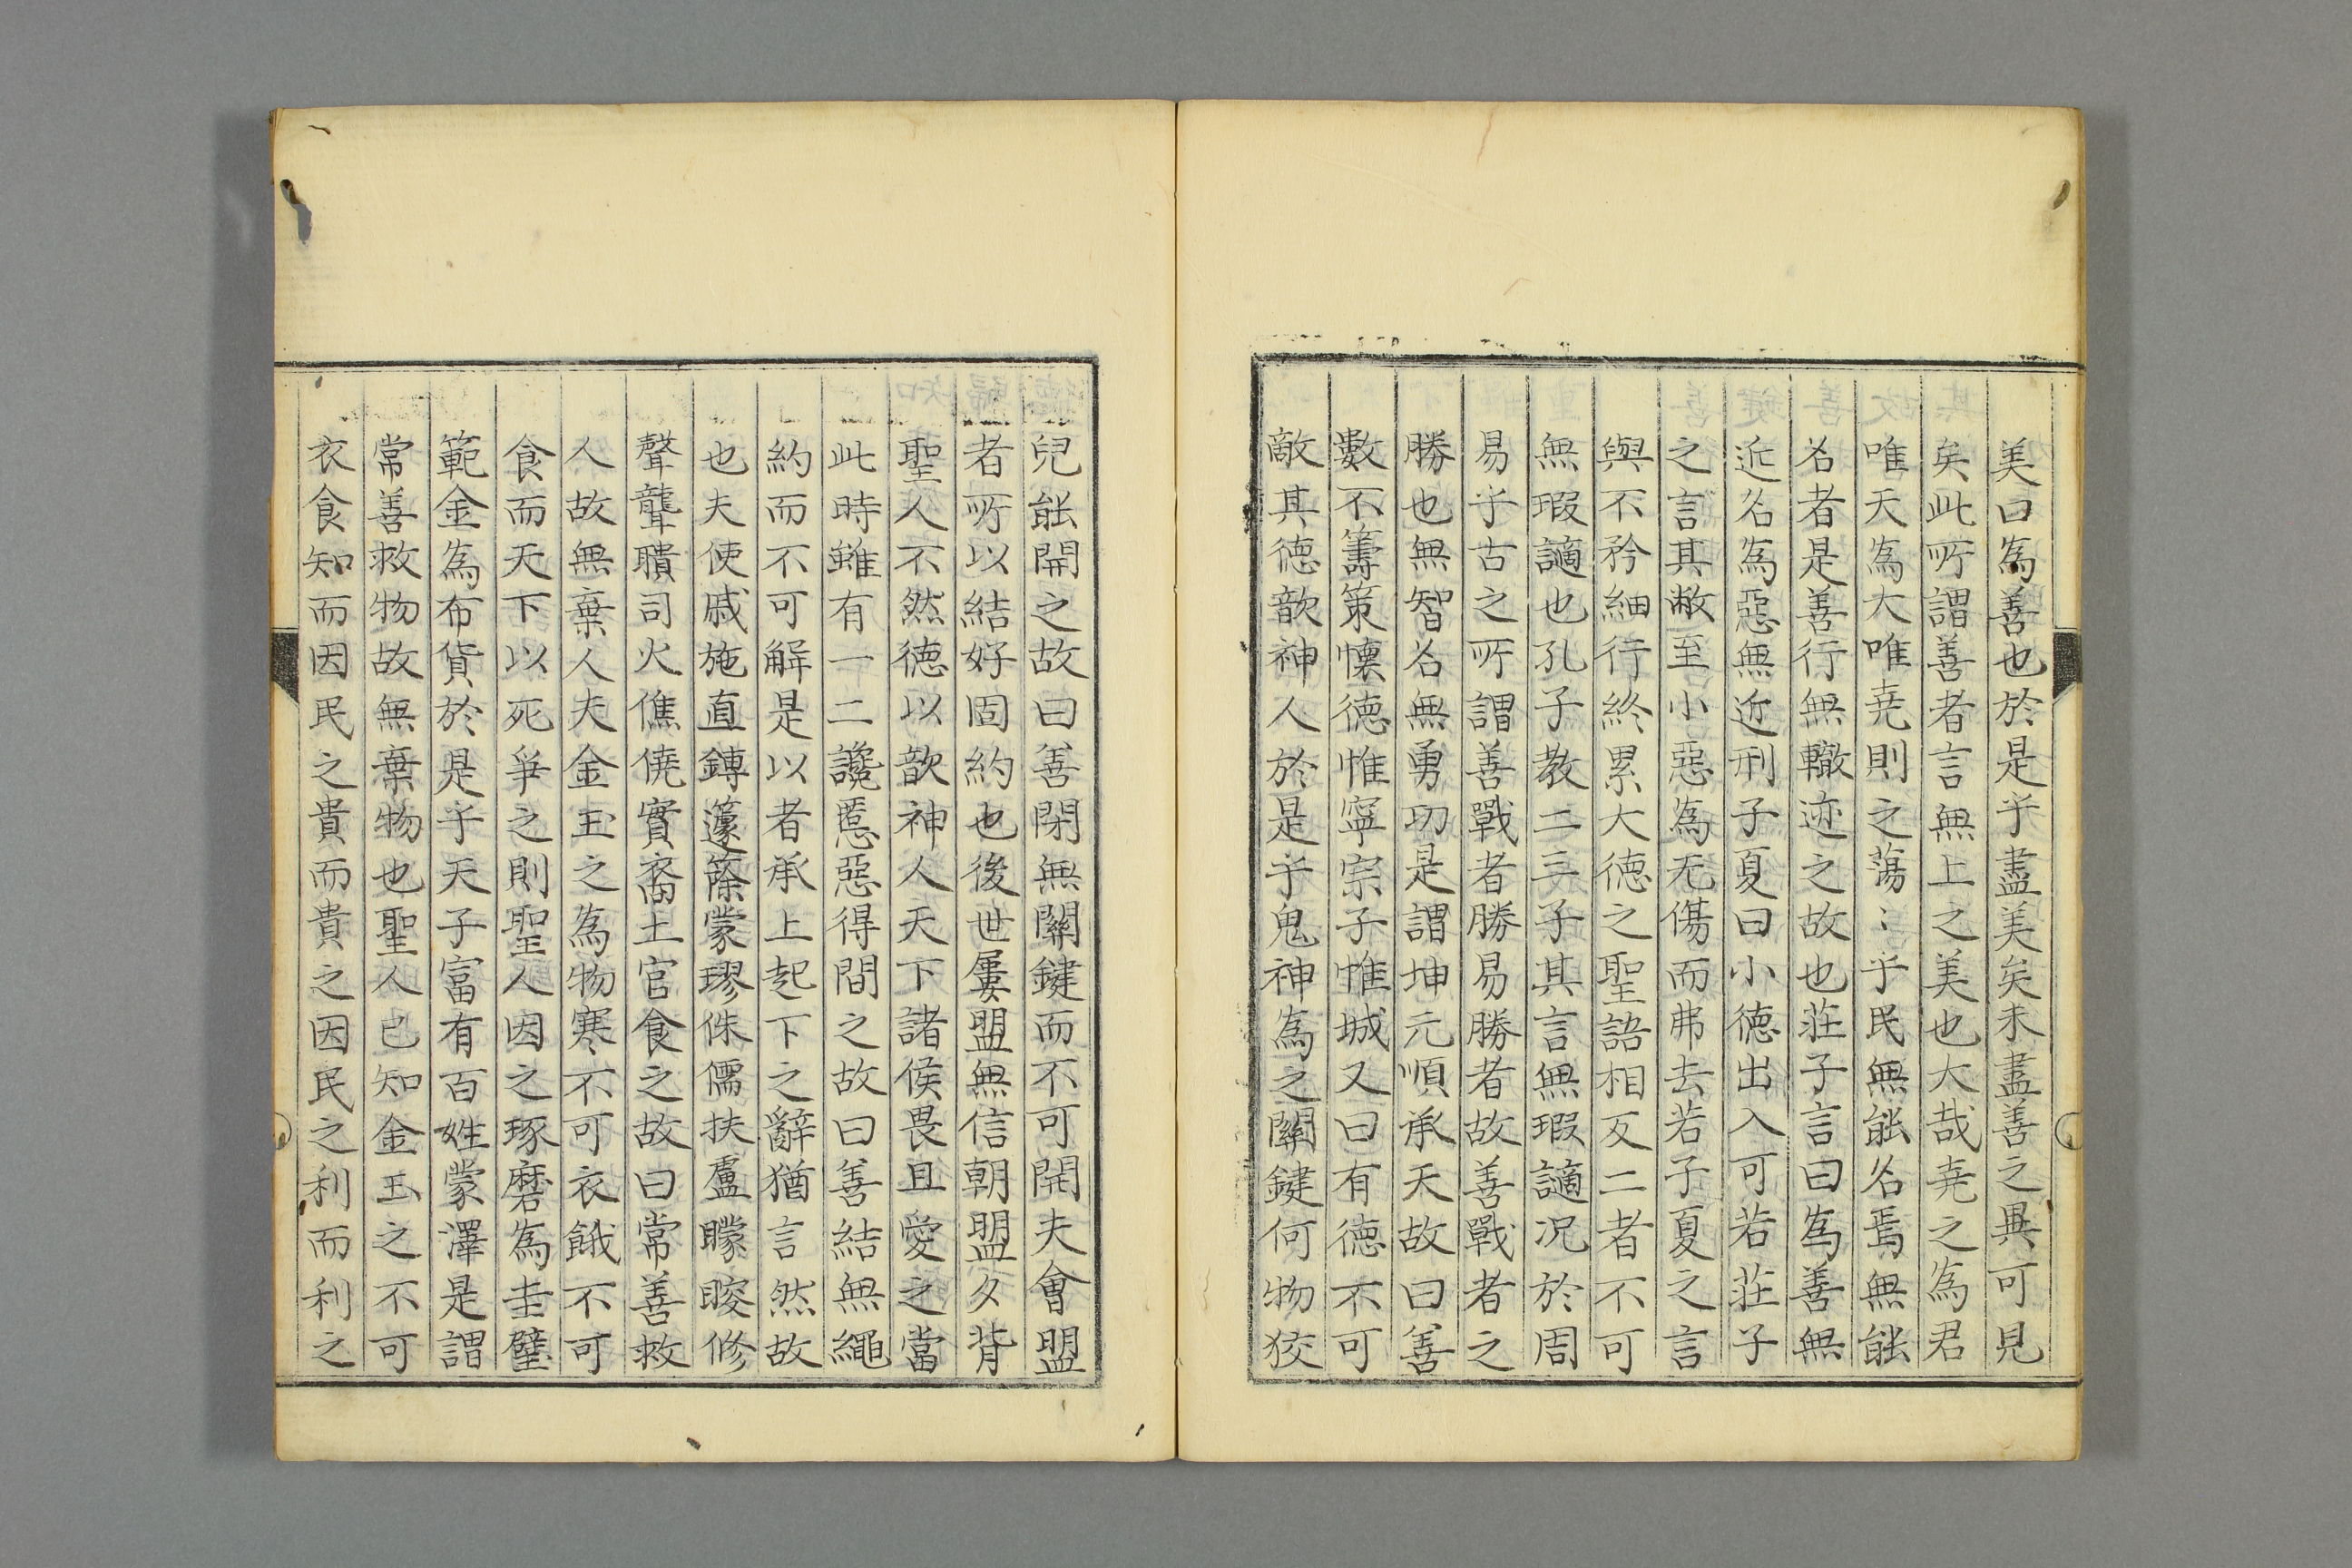 美曰為善也於是乎盡美矣未盡善之異可見
矣此所謂善者言無上之美也大哉尭之為君
唯天為大唯尭則之蕩〻乎民無能名焉無能
名者是善行無轍迹之故也荘子言曰為善無
近名為惡無近刑子夏曰小徳出入可若荘子
之言其敝至小惡為无傷而弗去若子夏之言
與不矜細行終累大徳之聖語相反二者不可
無瑕謫也孔子教二三子其言無瑕謫况於周
易乎古之所謂善戰者勝易勝者故善戰者之
勝也無智名無勇功是謂坤元順承天故曰善
數不籌策懐徳惟寧宗子惟城又曰有徳不可
敵其徳歆神人於是乎鬼神為之關鍵何物狡
兒能開之故曰善閉無關鍵而不可開夫會盟
者所以結好固約也後世屢盟無信朝盟夕背
聖人不然徳以歆神人天下諸侯畏且愛之當
此時雖有一二讒慝惡得間之故曰善結無繩
約而不可解是以者承上起下之辭猶言然故
也夫使戚施直鎛蘧篨蒙璆侏儒扶盧矇瞍修
聲聾聵司火僬僥實裔土官食之故曰常善救
人故無棄人夫金玉之為物寒不可衣餓不可
食而天下以死爭之則聖人因之琢磨為圭璧
範金為布貨於是乎天子富有百姓蒙澤是謂
常善救物故無棄物也聖人已知金玉之不可
衣食知而因民之貴而貴之因民之利而利之